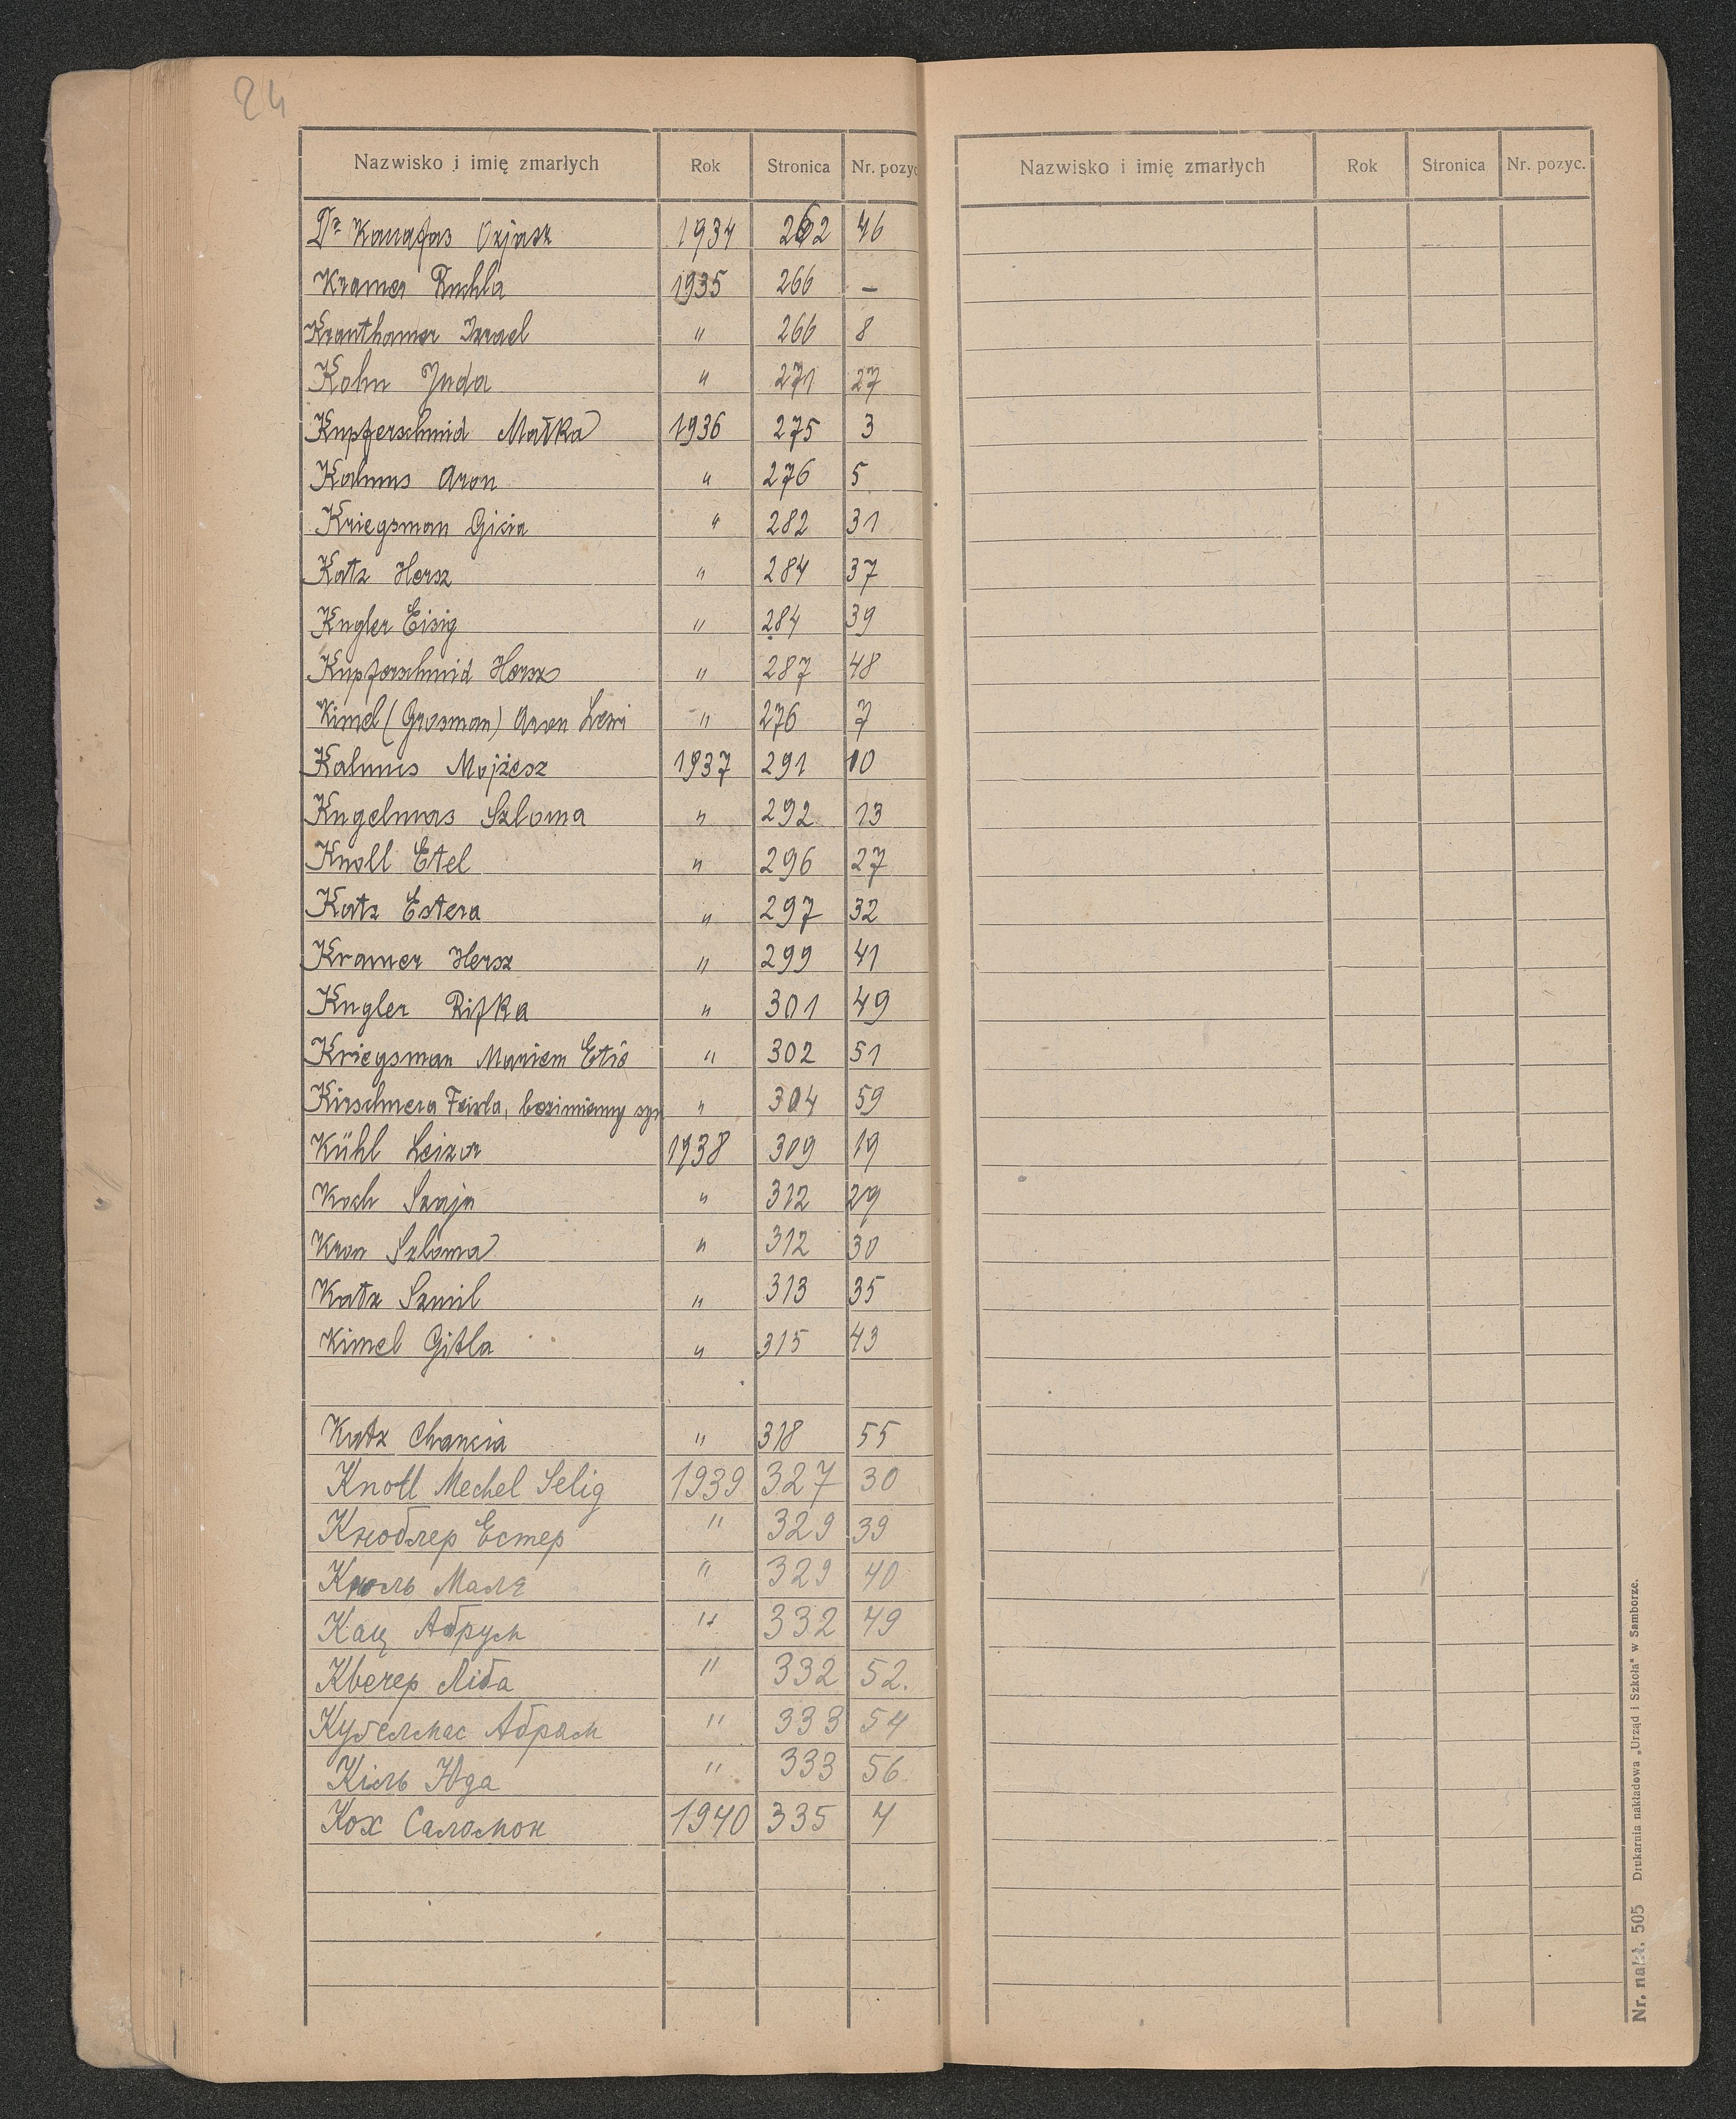 24
Nazwisko i imię zmarłych Rok Stronica Nr. pozyc
Dr Kanafas Ozjasz 1934 262 46
Kramer Ruchla 1935 266 –
Krauthamer Izrael " 266 8
Kohn Juda " 271 27
Kupferschmid Małka 1936 275 3
Kalmus Aron " 276 5
Kriegsman Gicia " 282 31
Katz Hersz " 284 37
Kugler Eisig " 284 39
Kupferschmid Hersz " 287 48
Kimel (Grosman) Aron Lewi " 276 7
Kalmus Mojżesz 1937 291 10
Kugelmas Szloma " 292 13
Knoll Etel " 296 27
Katz Estera " 297 32
Kramer Hersz " 299 41
Kugler Rifka " 301 49
Kriegsman Mariem Etie " 302 51
Kirschnera Feiwla, bezimienny syn " 304 59
Kühl Leizor 1938 309 19
Koch Szaja " 312 29
Kron Szloma " 312 30
Katz Szmil " 313 35
Kimel Gitla " 315 43
Katz Chancia " 318 55
Knoll Mechel Selig 1939 327 30
Кноблер Естер " 329 39
Кноль Маля " 329 40
Кац " 332 49
Кветер Ліба " 332 52.
Абрам " 333 54
Кіль Юда " 333 56
Кох Саломон 1940 335 4
Nazwisko i imię zmarłych Rok Stronica Nr. pozyc.
Nr. nakł. 505 Drukarnia nakładowa „Urząd i Szkoła" w Samborze.